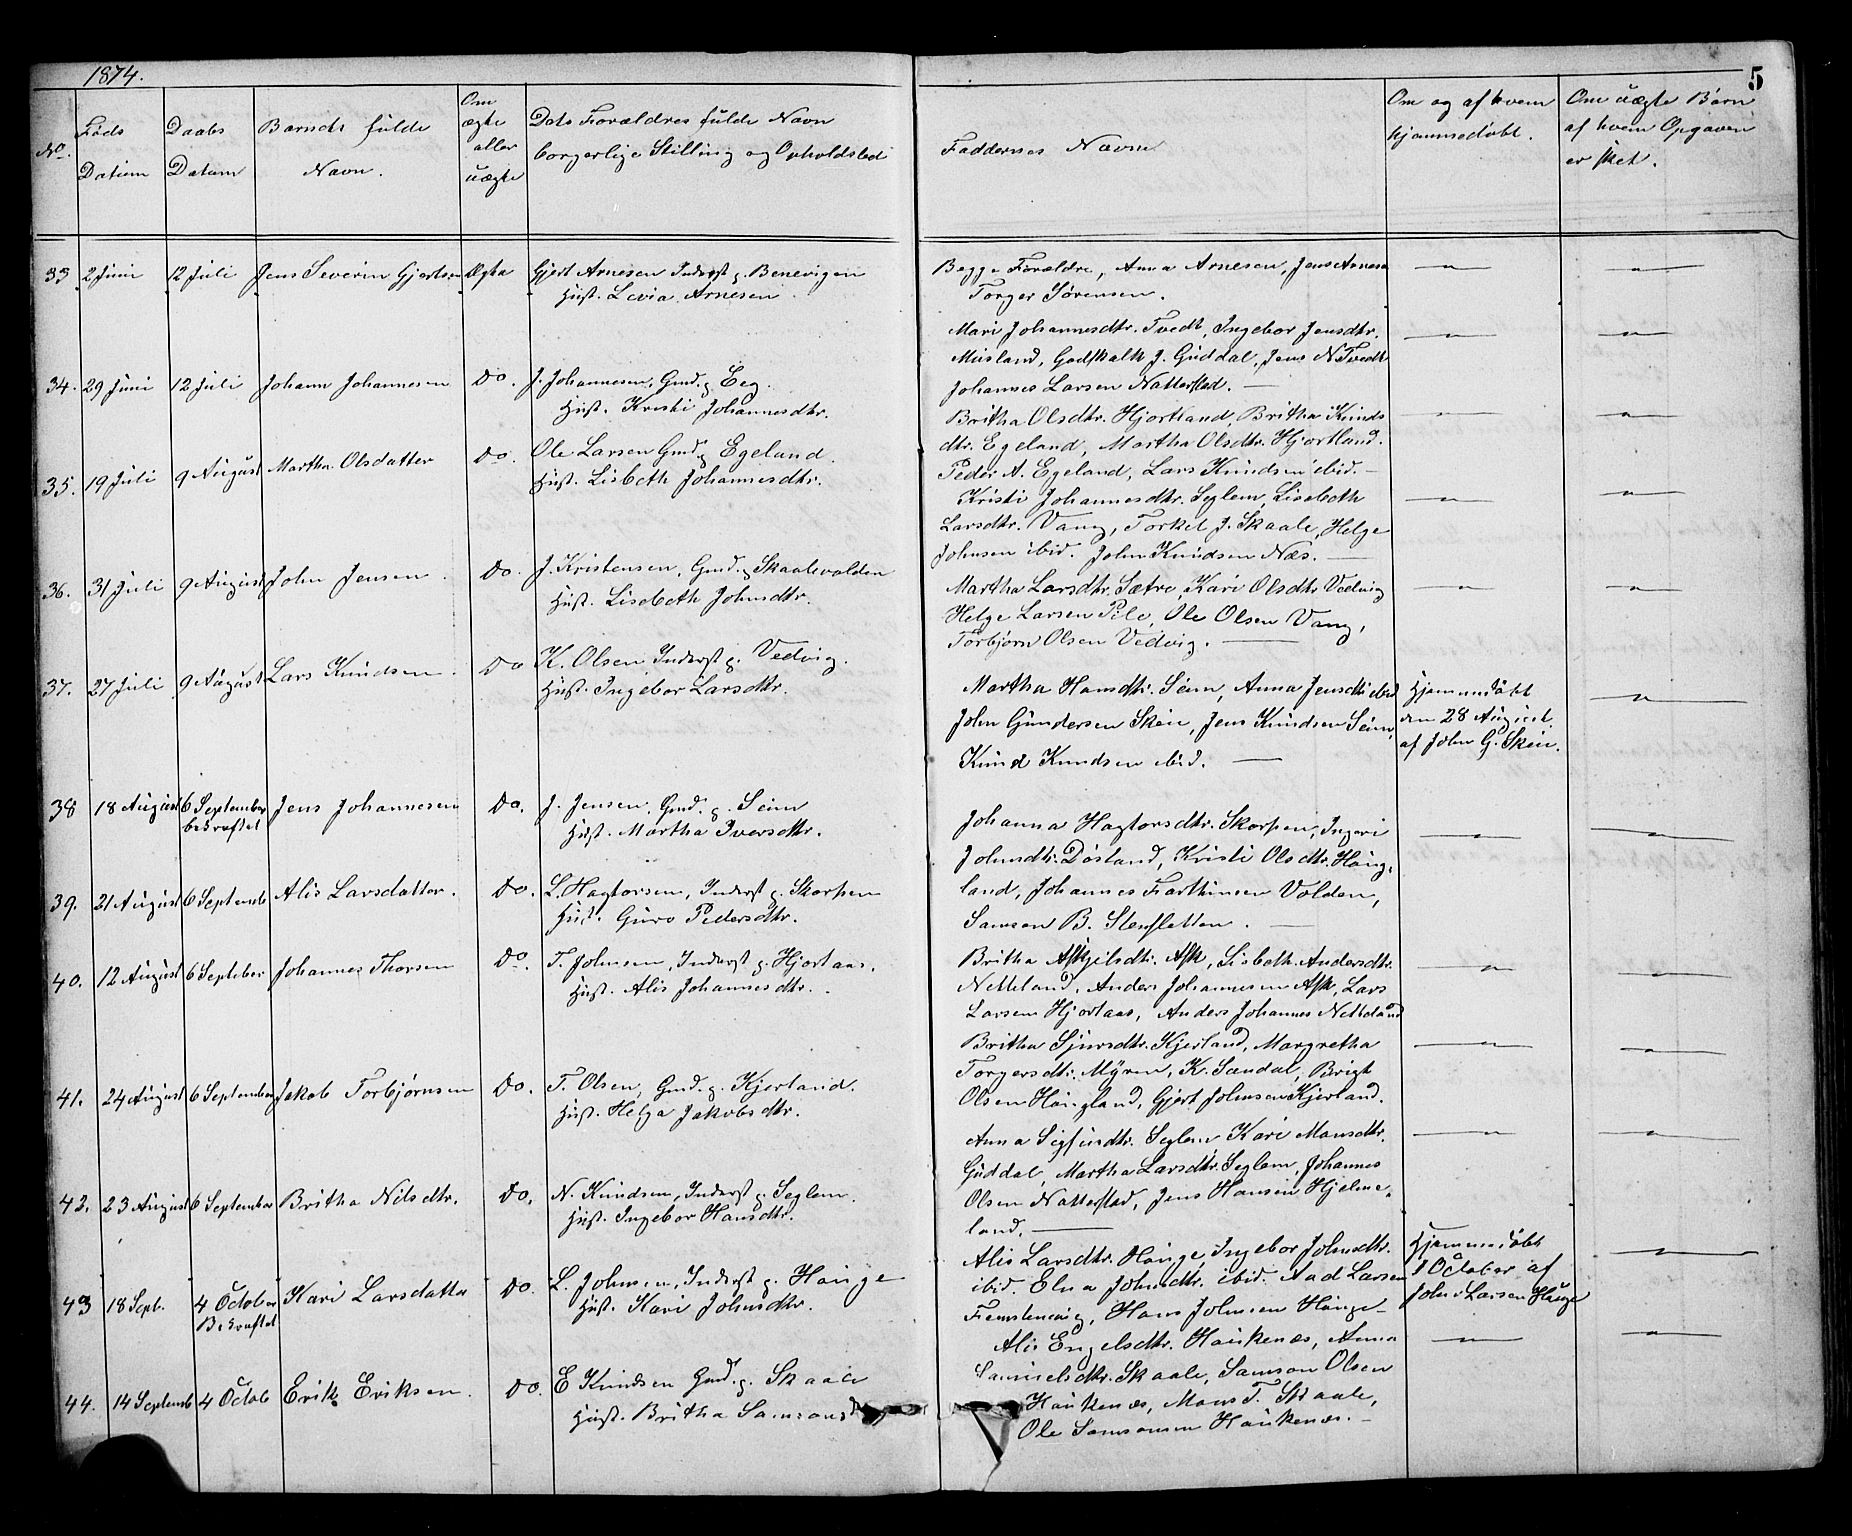 1874.
5
No.
Føds
Datum
Daabs
Datum
Barnets fulde
Navn.
Om
ægte
eller
uægte
Dets Forældres fulde Navn
borgerlige Stilling og Opholdsted
Faddernes Navne
Om og af hvem
hjemmedøbt.
Om uægte Børn
af hvem Opgaven
er sket.
33 2 Juni 12 Juli Jens Severin Gjertsen Ægte Gjert Arnesen Inderst g. Benevigen
Hust. Lovia Arnesen.
Begge Forældre, Anna Arnesen, Jens Arnesen
Torger Sørensen.
34. 29 Juni 12 Juli Johann Johannesen Do. J. Johannesen, Gmd. g. Eeg.
Hust. Kristi Johannesdtr.
Mari Johannesdtr. Tvedt, Ingebor Jensdtr.
Musland, Godskalk J. Guddal, Jens N Tvedt
Johannes Larsen Natterstad. —
35. 19 Juli 9 August Martha Olsdatter Do. Ole Larsen Gmd. g Egeland.
Hust. Lisbeth Johannesdtr.
Britha Olsdtr. Hjortland, Britha Knuds
dtr. Egeland, Martha Olsdtr. Hjortland.
Peder A. Egeland, Lars Knudsen ibid. —
36. 31 Juli 9 August John Jensen. Do. J. Kristensen, Gmd. g Skaalevolden
Hust. Lisebeth Johnsdtr.
Kristi Johannesdtr. Seglem, Lisebeth
Larsdtr. Vang, Torkel J. Skaale, Helge
Johnsen ibid. John Knudsen Næs. —
37. 27 Juli 9 August Lars Knudsen. Do K. Olsen, Inderst g. Vedvig.
Hust. Ingebor Larsdtr.
Martha Larsdtr. Sætre, Kari Olsdtr. Vedvig
Helge Larsen Pile, Ole Olsen Vang,
Torbjørn Olsen Vedvig. —
38 18 August 6 September Jens Johannesen Do. J. Jensen, Gmd. g. Seim
bekræftet
Hust. Martha Iversdtr.
Martha Hansdtr. Seim, Anna Jensdtr ibid
John Gundersen Skeie, Jens Knudsen Seim,
Knud Knudsen ibid. —
Hjemmedøbt
den 28 August.
af John G. Skeie.
39. 21 August 6 Septemb Alis Larsdatter. Do. L. Hagtorsen, Inderst g. Skorpen
Hust. Guro Pedersdtr.
Johanna Hagtorsdtr. Skorpen, Ingeri
Johnsdtr. Døsland, Kristi Olsdtr. Haug,
land, Johannes Farthinsen Volden,
Samson B. Stensletten. —
40. 12 August 6 September Johannes Thorsen Do. T. Johnsen, Inderst g. Hjortaas.
Hust. Alis Johannesdtr.
Britha Askjelsdtr. Ask, Lisbeth Andersdtr.
Netteland, Anders Johannesen Ask, Lars
Larsen Hjortaas, Anders Johannes Netteland
41. 24 August 6 September Jakob Torbjørnsen Do. T. Olsen, Gmd. g. Kjerland.
Hust. Helga Jakobsdtr.
Britha Sjursdtr. Kjerland, Margretha
Torgersdtr. Myren, K. Sandal, Brigt
Olsen Haugland, Gjert Johnsen Kjerland.
42. 23 August 6 September Britha Nilsdtr. Do. N. Knudsen, Inderst g. Seglem.
Hust. Ingebor Hansdtr.
Anna Sigfusdtr. Seglem Kari Monsdtr.
Guddal, Martha Larsdtr. Seglem, Johannes
Olsen Natterstad, Jens Hansen Hjelme,
land, —
43 18 Sept. 4 October Kari Larsdatter Do. L. Johnsen, Inderst g. Hauge
Bekræftet
Hust. Kari Johnsdtr.
Alis Larsdtr. Hauge, Ingebor Johnsdtr.
ibid. Elna Johnsdtr. ibid. Aad Larsen
Femstenevig, Hans Johnsen Hauge —
Hjemmedøbt
1 October af
John Larsen Hauge
44. 14 Septemb 4 Octob Erik Eriksen. Do. E Knudsen Gmd. g. Skaale
Hust. Britha Samsons
Alis Engelsdtr. Haukenæs, Anna
Samuelsdtr. Skaale, Samson Olsen
Haukenæs, Mons T. Skaale,
Ole Samsonsen Haukenæs. —